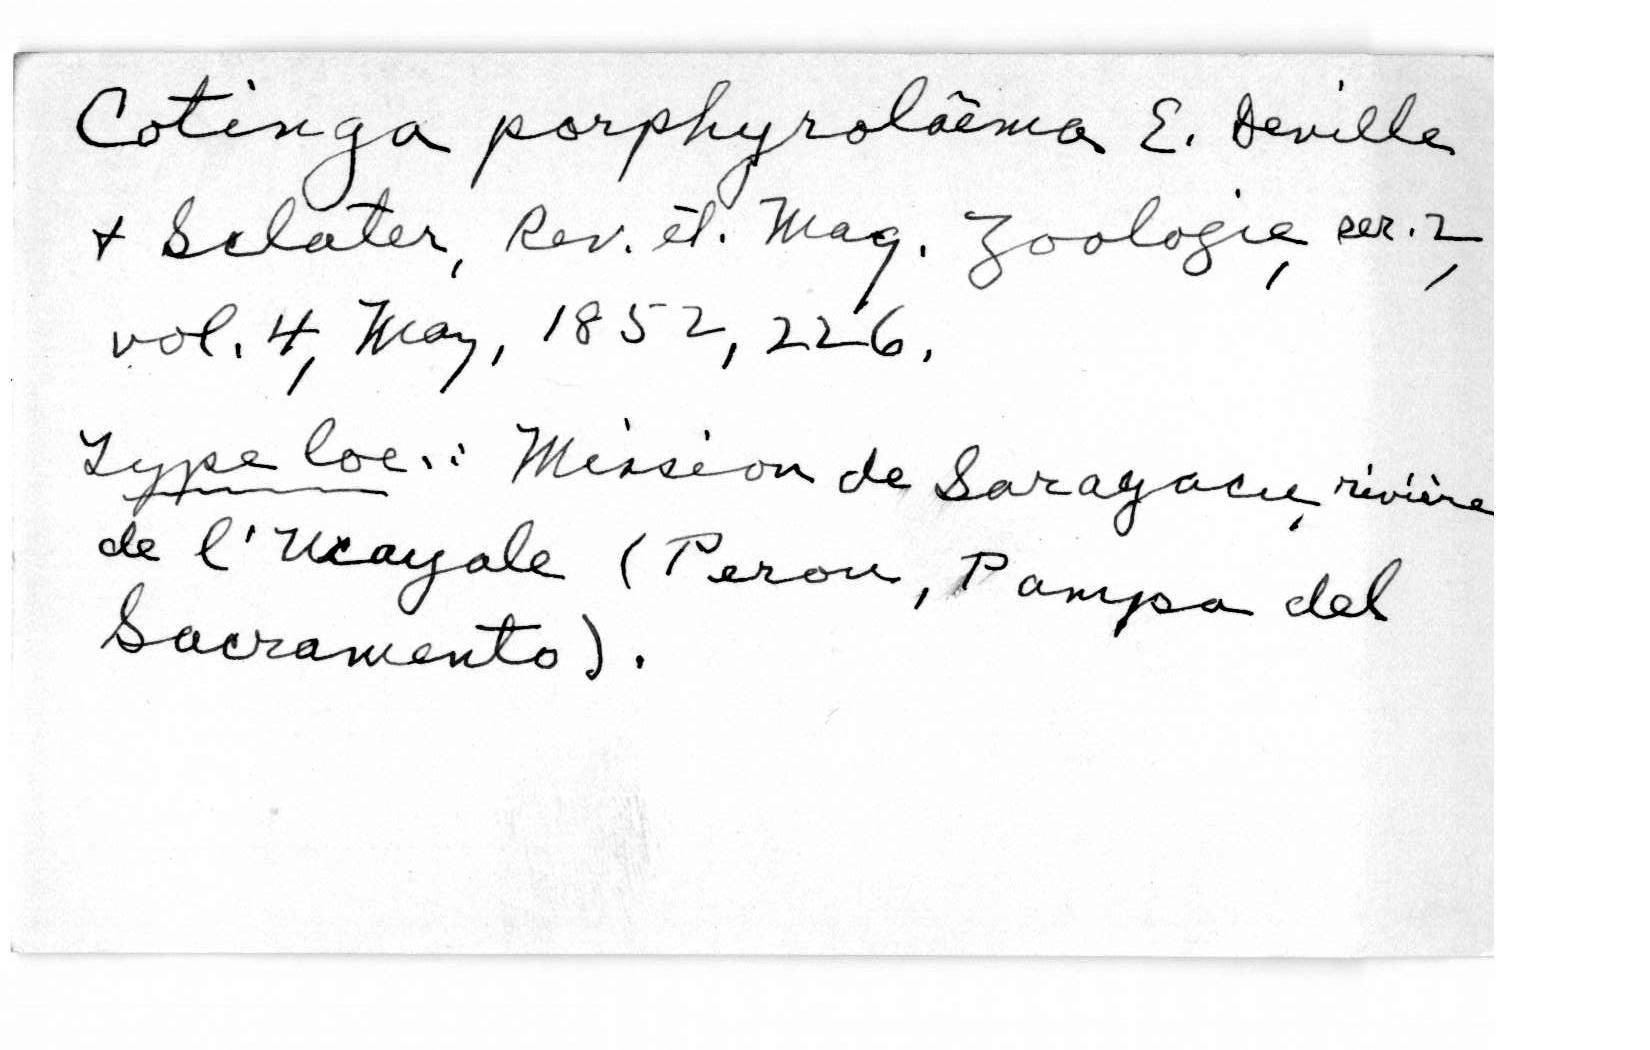 Cotinga porphyrolaëma E. Deville
+ Sclater, Rev. et. Mag. Zoologie, ser. 2,
vol. 4, May, 1852, 226.
Type loc.: Mission de Sarayacu, rivière
de l'Ucayale (Perou, Pampa del
Sacramento).